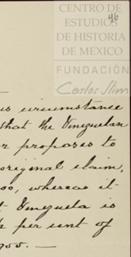 CENTRO DE
ESTUDIOS
DE HISTORIA
DE MEXICO
FUNDACIÓN
Carlos Slim
circumstance
that the Venezuelan
proposes to
original claim,
whereas it
Venezuela is
per cent of